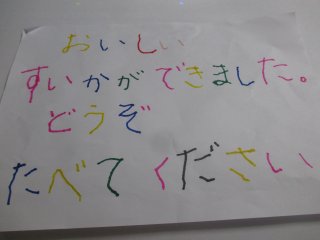 おいしい
すいかができました。
どうぞ
たべてください